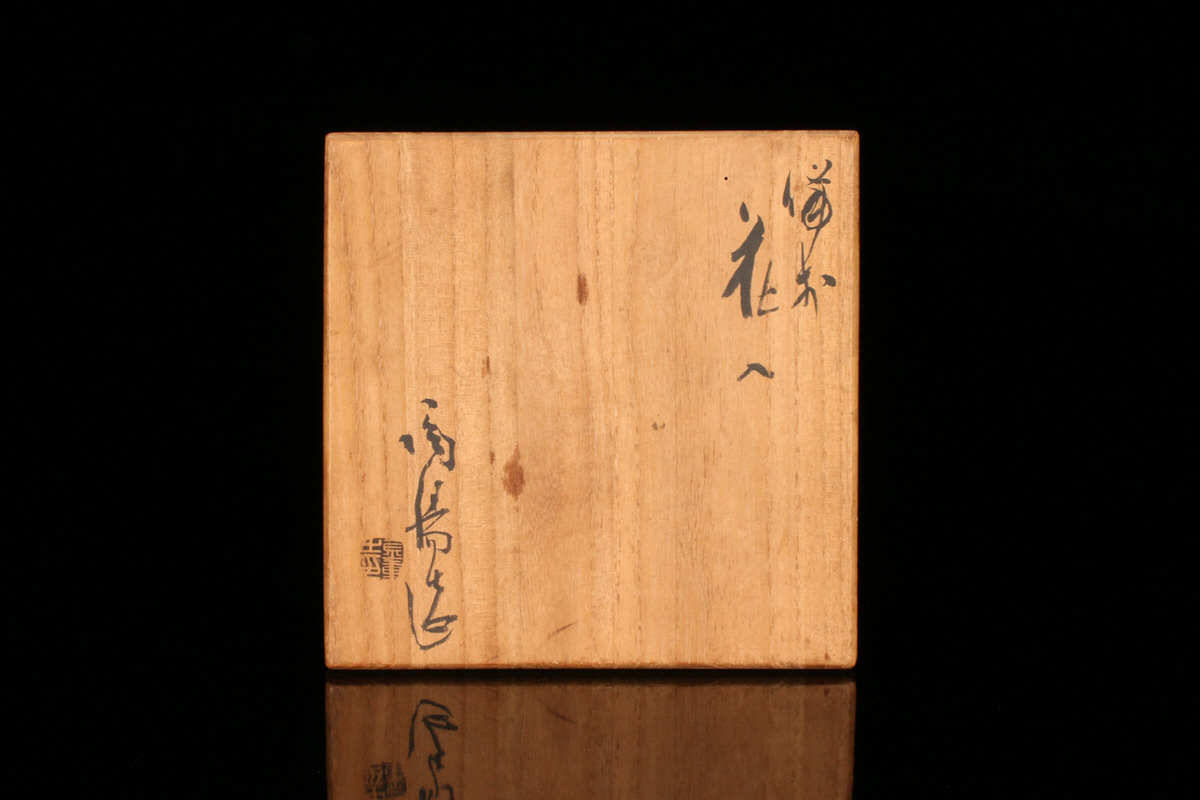 備前
花入
陶陽造